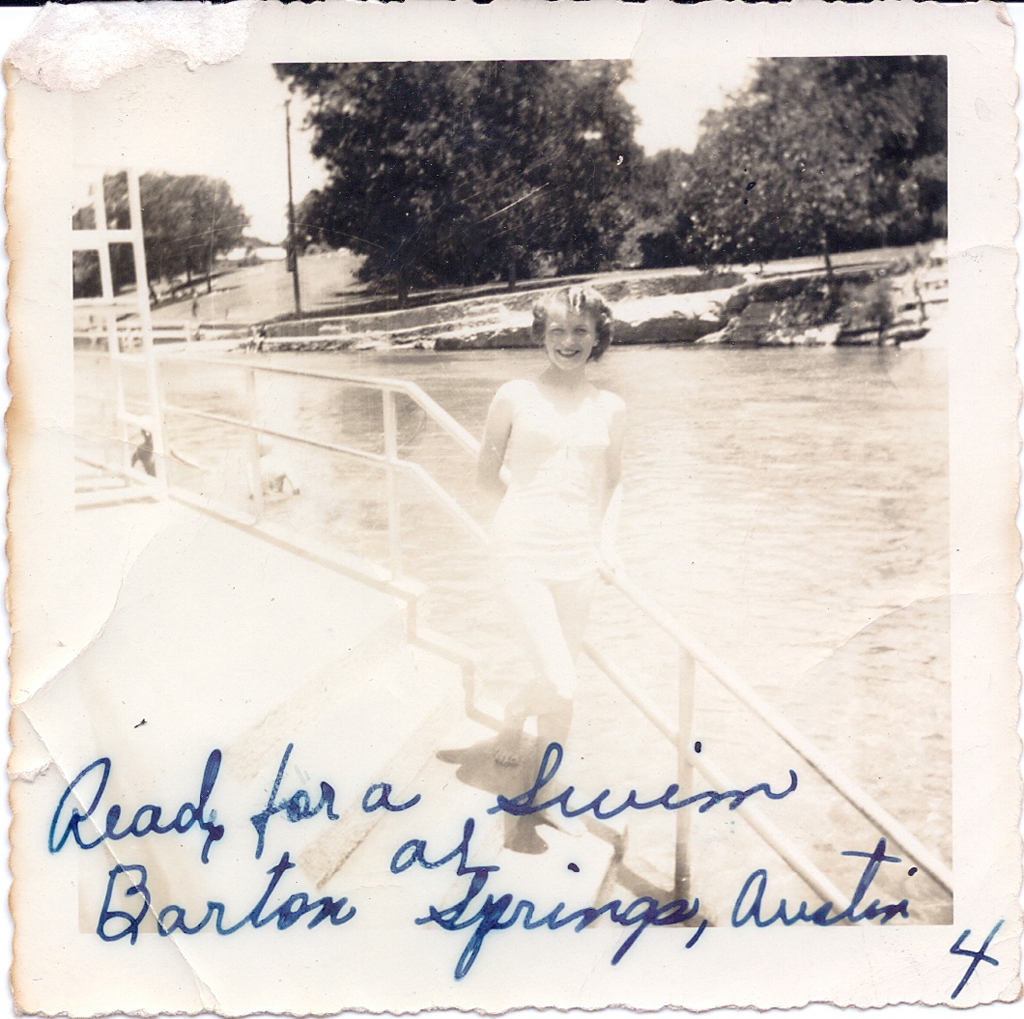 Ready for a Swim
at
Barton Springs, Austin
4